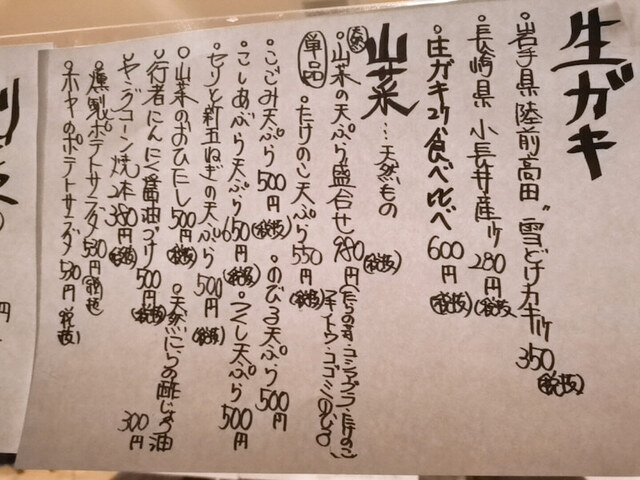 生ガキ
・岩手県 陸前高田〝雪どけカキ〟 350 (税抜)
・長崎県 小長井産 280円 (税抜)
・生ガキ2ケ食べ比べ 600円 (税抜)
山菜…天然もの
・山菜の天ぷら盛合せ 980円 (税抜)
単品
・たけのこ天ぷら 550円 (税抜)
・こごみ天ぷら 500円 (税抜) ・のびる天ぷら 500円
・こしあぶら天ぷら 650円 (税抜) ・つくし天ぷら 500円
・セリと新玉ねぎの天ぷら 500円 (税抜)
・山菜のおひたし 500円 (税抜) ・天然にらの酢じょう油 300円
・行者にんにく醤油づけ 500円 (税抜)
・ヤングコーン焼 2本 380円 (税抜)
・燻製ポテトサラダ 580円 (税抜)
・ホヤのポテトサラダ 580円 (税抜)